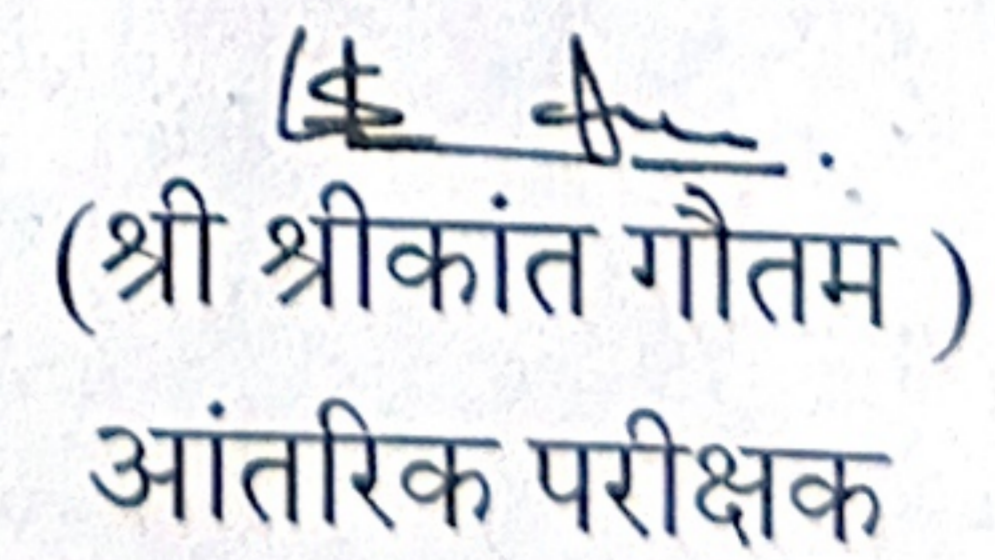 (श्री श्रीकांत गौतम )
आंतरिक परीक्षक